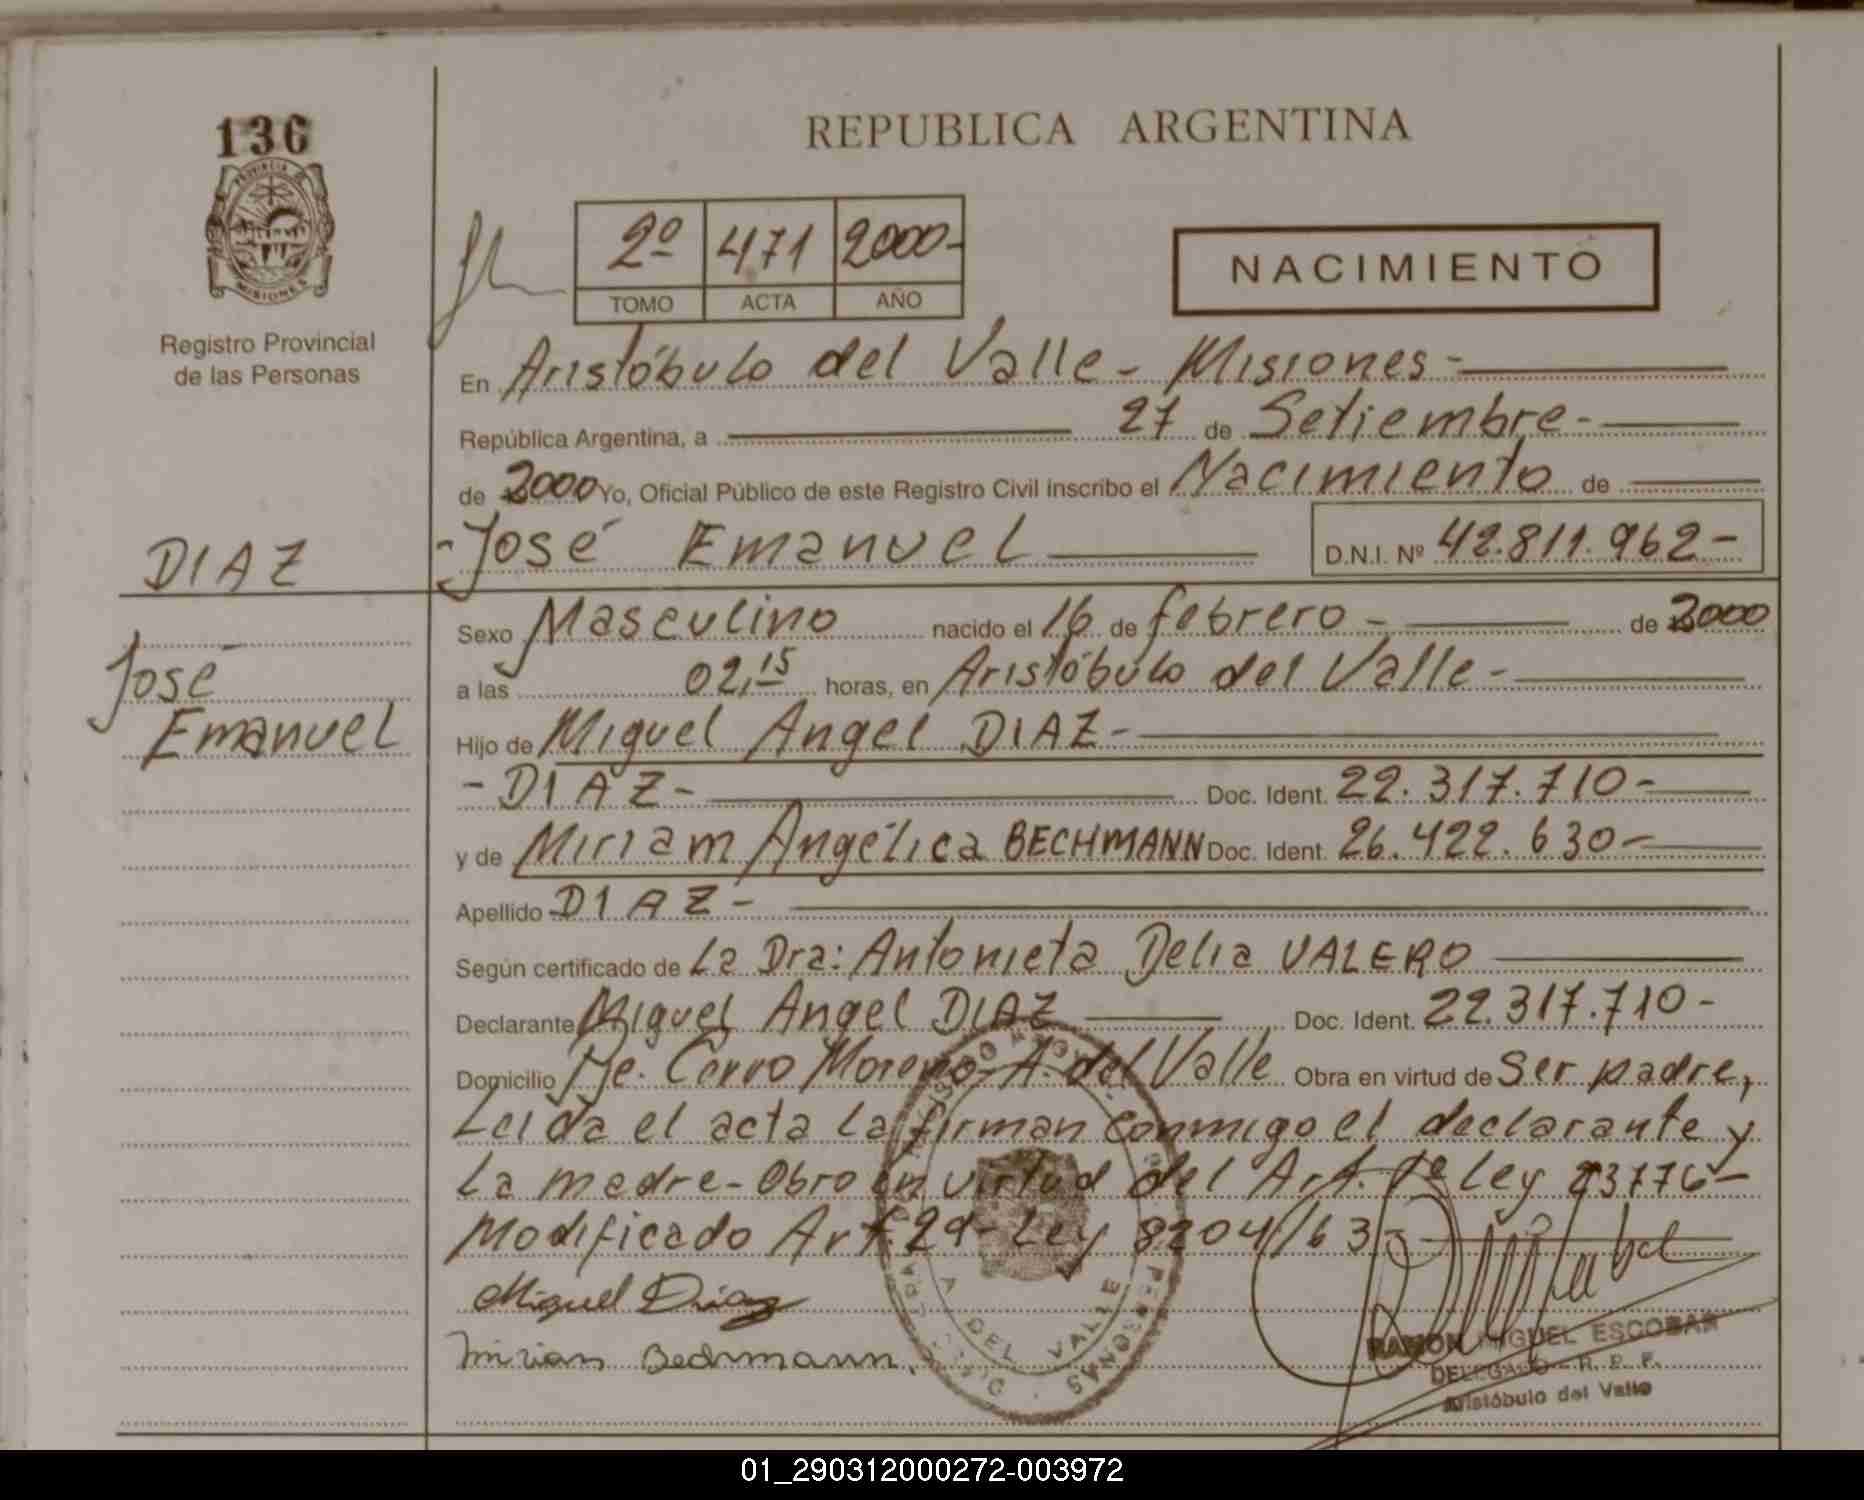 136
PROVINCIA DE
MISIONES
Registro Provincial
de las Personas
DIAZ
José
Emanuel
REPUBLICA ARGENTINA
2º 471 2000-
TOMO ACTA AÑO
NACIMIENTO
En Aristóbulo del Valle - Misiones -
República Argentina, a 27 de Setiembre -
de 2000 Yo, Oficial Público de este Registro Civil inscribo el Nacimiento de
- José Emanuel D.N.I. Nº 42.811.962-
Sexo Masculino nacido el 16 de febrero - de 2000
a las 02,15 horas, en Aristóbulo del Valle -
Hijo de Miguel Angel DIAZ -
- DIAZ - Doc. Ident. 22.317.710-
y de Miriam Angélica BECHMANN Doc. Ident. 26.422.630-
Apellido DIAZ -
Según certificado de La Dra: Antonieta Delia VALERO
Declarante Miguel Angel DIAZ Doc. Ident. 22.317.710-
Domicilio Cerro Moreno - A. del Valle Obra en virtud de Ser padre,
Leida el acta la firman conmigo el declarante y
La madre - Obro en virtud del Art. 1º Ley 23776-
Modificado Art. 29 - Ley 8204/63-
Miguel Diaz
Mirian Bechmann.
A DEL VALLE
RAMON MIGUEL ESCOBAR
DELEGADO - R. P. P.
Aristóbulo del Valle
01_290312000272-003972